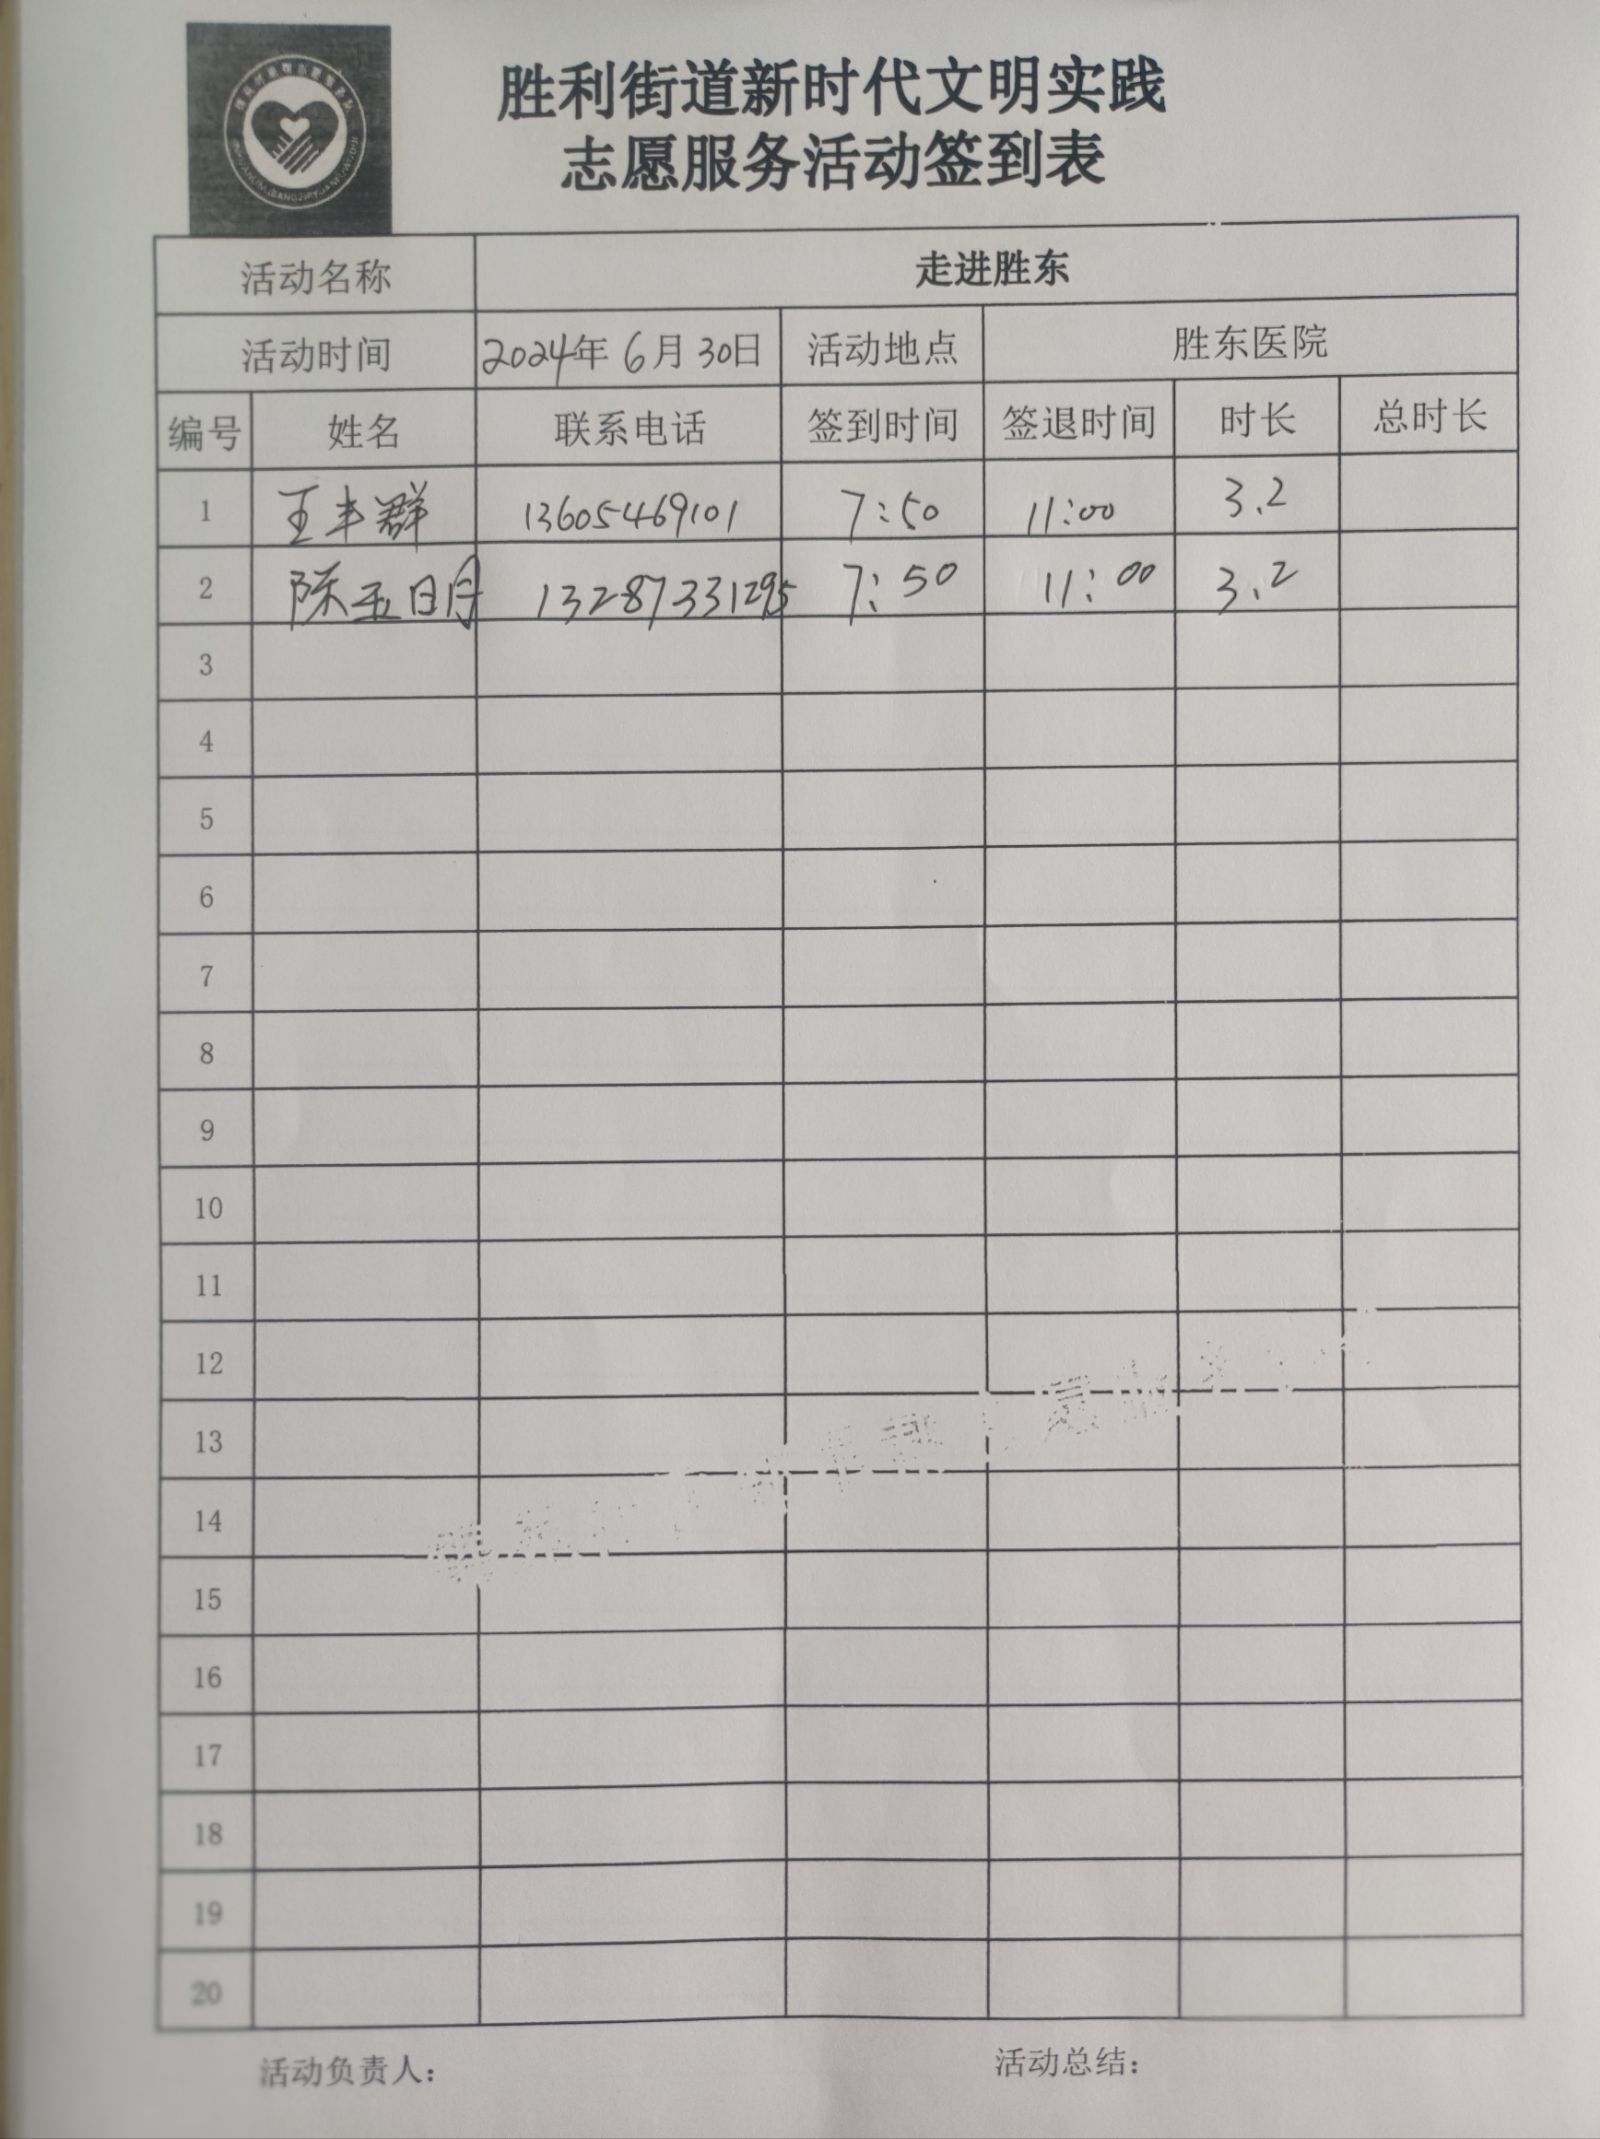 胜利街道新时代文明实践
志愿服务活动签到表
活动名称 走进胜东
活动时间 2024年6月30日 活动地点 胜东医院
编号 姓名 联系电话 签到时间 签退时间 时长 总时长
1 王丰群 13605469101 7:50 11:00 3.2
2 陈玉明 13287331295 7:50 11:00 3.2
3
4
5
6
7
8
9
10
11
12
13
14
15
16
17
18
19
20
活动负责人: 活动总结: